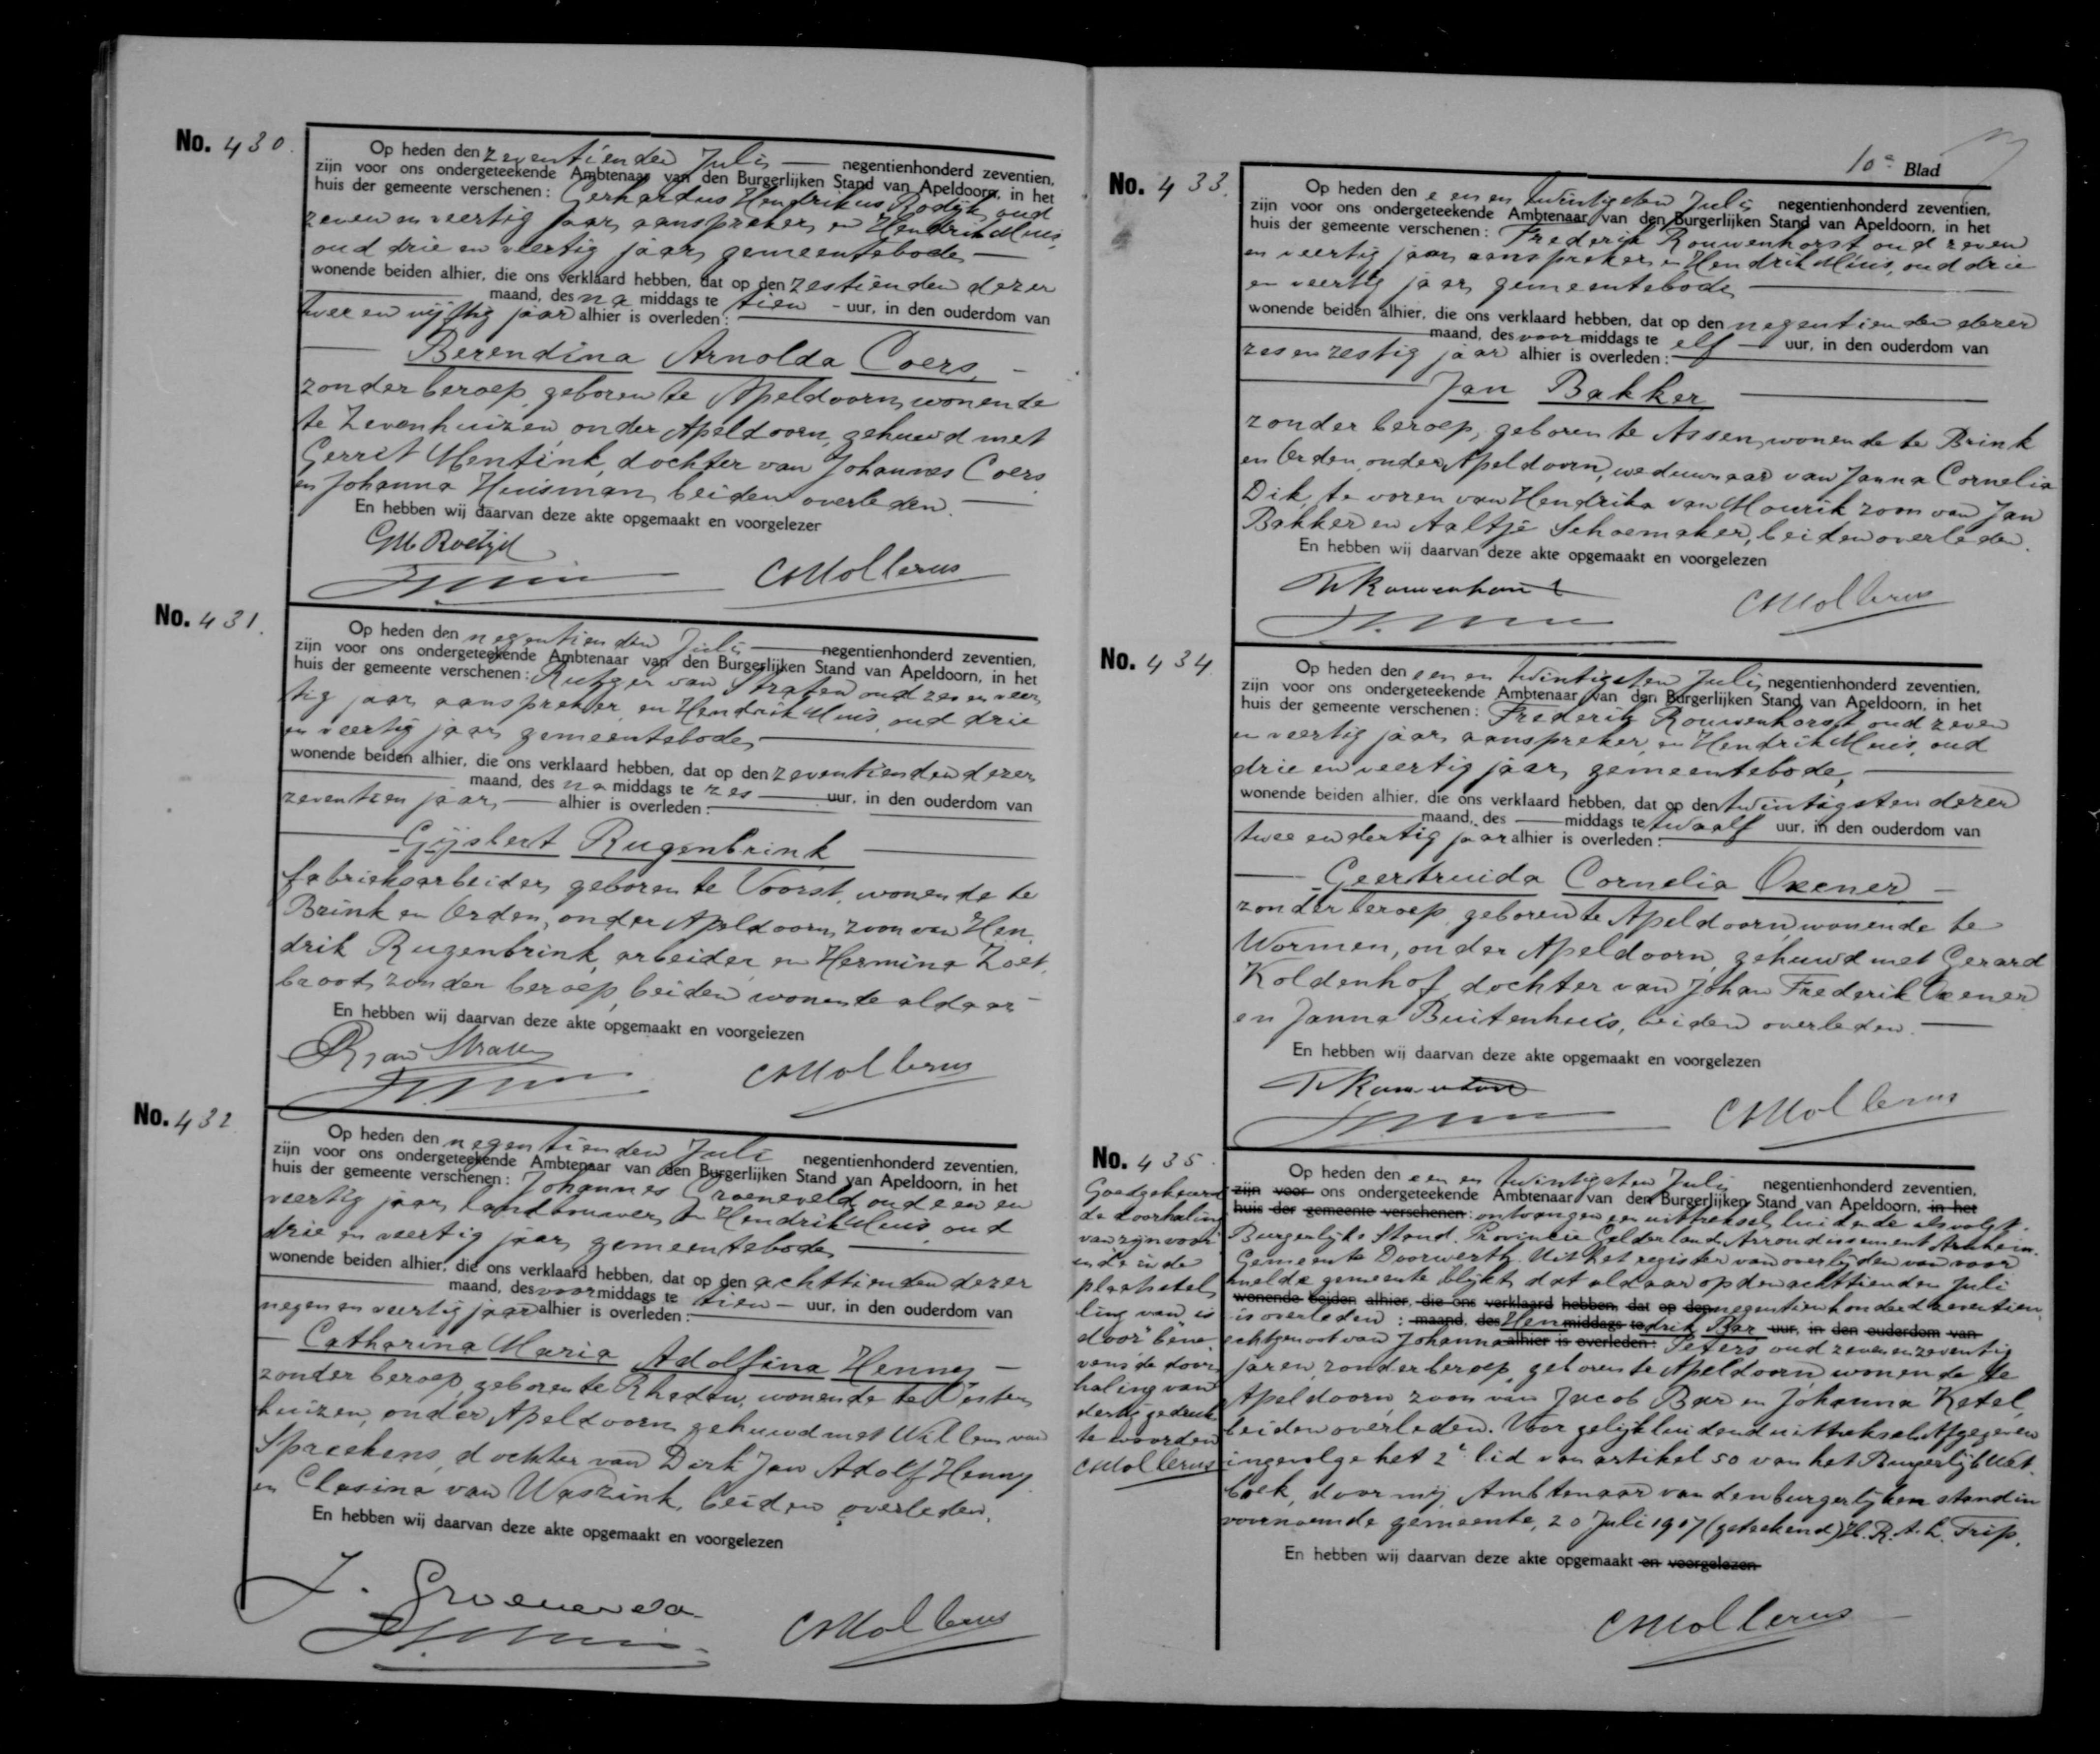 No. 430.
Op heden den zeventienden Juli negentienhonderd zeventien,
zijn voor ons ondergeteekende Ambtenaar van den Burgerlijken Stand van Apeldoorn, in het
huis der gemeente verschenen: Gerhardus Hendrikus Rodijk, oud
zeven en veertig jaar, aanspreker, en Hendrik Muis,
oud drie en veertig jaar, gemeentebode,
wonende beiden alhier, die ons verklaard hebben, dat op den zestienden dezer
maand, des na middags te tien uur, in den ouderdom van
twee en vijftig jaar alhier is overleden:
Berendina Arnolda Coers,
zonder beroep, geboren te Apeldoorn, wonende
te Zevenhuizen, onder Apeldoorn, gehuwd met
Gerrit Mentink, dochter van Johannes Coers
en Johanna Huisman, beiden overleden.
En hebben wij daarvan deze akte opgemaakt en voorgelezen
CMollerus
No. 431.
Op heden den negentienden Juli negentienhonderd zeventien,
zijn voor ons ondergeteekende Ambtenaar van den Burgerlijken Stand van Apeldoorn, in het
huis der gemeente verschenen: Rutger van Straten oud zes en veer
tig jaar, aanspreker, en Hendrik Muis, oud drie
en veertig jaar, gemeentebode,
wonende beiden alhier, die ons verklaard hebben, dat op den zeventienden dezer
maand, des na middags te zes uur, in den ouderdom van
zeventien jaar, alhier is overleden:
Gijsbert Rugenbrink
fabrieksarbeider, geboren te Voorst, wonende te
Brink en Orden, onder Apeldoorn, zoon van Hen
drik Rugenbrink, arbeider, en Hermina Zoet
broot, zonder beroep, beiden wonende aldaar
En hebben wij daarvan deze akte opgemaakt en voorgelezen
R van Straten
CMollerus
No. 432
Op heden den negentienden Juli negentienhonderd zeventien,
zijn voor ons ondergeteekende Ambtenaar van den Burgerlijken Stand van Apeldoorn, in het
huis der gemeente verschenen: Johannes Groeneveld, oud een en
veertig jaar, landbouwer, en Hendrik Muis, oud
drie en veertig jaar, gemeentebode,
wonende beiden alhier, die ons verklaard hebben, dat op den achttienden dezer
maand, des voor middags te tien uur, in den ouderdom van
negen en veertig jaar alhier is overleden:
Catharina Maria Adolfina Henny
zonder beroep, geboren te Rheden, wonende te Ooster
huizen, onder Apeldoorn, gehuwd met Willem van
Spreekens, dochter van Derk Jan Adolf Henny
en Clasina van Waszink, beiden overleden.
En hebben wij daarvan deze akte opgemaakt en voorgelezen
J. Groeneveld
CMollerus
10e Blad
No. 433.
Op heden den een en twintigsten Juli negentienhonderd zeventien,
zijn voor ons ondergeteekende Ambtenaar van den Burgerlijken Stand van Apeldoorn, in het
huis der gemeente verschenen: Frederik Rouwenhorst oud zeven
en veertig jaar, aanspreker, en Hendrik Muis, oud drie
en veertig jaar, gemeentebode
wonende beiden alhier, die ons verklaard hebben, dat op den negentienden dezer
maand, des voor middags te elf uur, in den ouderdom van
zes en zestig jaar alhier is overleden:
Jan Bakker
zonder beroep, geboren te Assen, wonende te Brink
en Orden, onder Apeldoorn, weduwnaar van Janna Cornelia
Dik, te voren van Hendrika van Mourik zoon van Jan
Bakker en Aaltje Schoemaker, beiden overleden.
En hebben wij daarvan deze akte opgemaakt en voorgelezen
CMollerus
No. 434
Op heden den een en twintigsten Juli negentienhonderd zeventien,
zijn voor ons ondergeteekende Ambtenaar van den Burgerlijken Stand van Apeldoorn, in het
huis der gemeente verschenen: Frederik Rouwenhorst oud zeven
en veertig jaar, aanspreker, en Hendrik Muis, oud
drie en veertig jaar, gemeentebode,
wonende beiden alhier, die ons verklaard hebben, dat op den twintigsten dezer
maand, des middags te twaalf uur, in den ouderdom van
twee en dertig jaar alhier is overleden:
Geertruida Cornelia Oxener
zonder beroep, geboren te Apeldoorn, wonende te
Wormen, onder Apeldoorn, gehuwd met Gerard
Koldenhof, dochter van Johan Frederik Oxener
en Janna Buitenhuis, beiden overleden.
En hebben wij daarvan deze akte opgemaakt en voorgelezen
CMollerus
No. 435.
Goedgekeurd
de doorhaling
van zijn voor
en de in de
plaatsstel
ling van is
door bene
vens de door
haling van
dertig gedruk
te woorden
CMollerus
Op heden den een en twintigsten Juli negentienhonderd zeventien,
zijn voor ons ondergeteekende Ambtenaar van den Burgerlijken Stand van Apeldoorn, in het
huis der gemeente verschenen: ontvangen een uittreksel, luidende als volgt.
Burgerlijke Stand. Provincie Gelderland. Arrondissement Arnhem.
Gemeente Doorwerth. Uit het register van overlijden van voor
melde gemeente blijkt, dat aldaar op den achttienden Juli
wonende beiden alhier, die ons verklaard hebben, dat op den negentienhonderd zeventien
is overleden: maand, des Hen middags te drik Bar uur, in den ouderdom van
echtgenoot van Johanna alhier is overleden: Peters oud zeven en zeventig
jaren, zonder beroep, geboren te Apeldoorn, wonende te
Apeldoorn, zoon van Jacob Bar en Johanna Ketel,
beiden overleden. Voor gelijkluidend uittreksel. Afgegeven
ingevolge het 2e lid van artikel 50 van het Burgerlijk Wet
boek, door mij, Ambtenaar van den burgerlijken stand in
voornoemde gemeente, 20 Juli 1917 (geteekend) H. R. A. L. Trip.
En hebben wij daarvan deze akte opgemaakt en voorgelezen
CMollerus